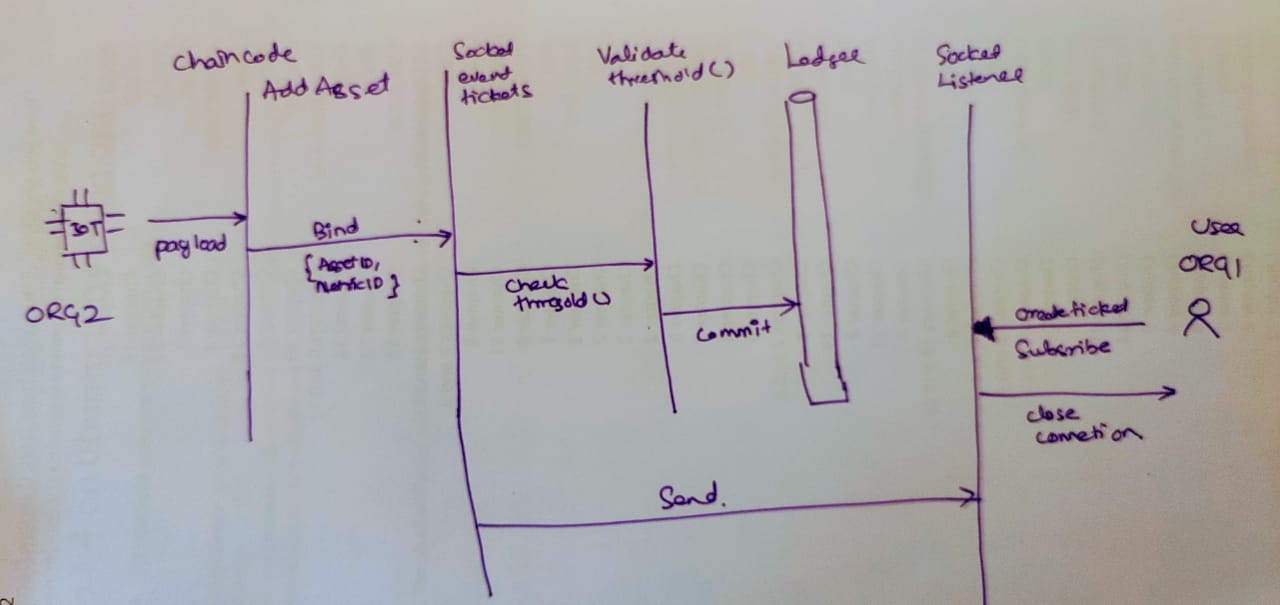 Chaincode
Add Asset
Socket
event
tickets
Validate
threshold()
Ledger
Socket
Listener
IOT
payload
ORG2
Bind
{AssetID,
MetricID}
Check
threshold()
Commit
User
ORG1
Create ticket
Subsribe
close
connetion
Send.